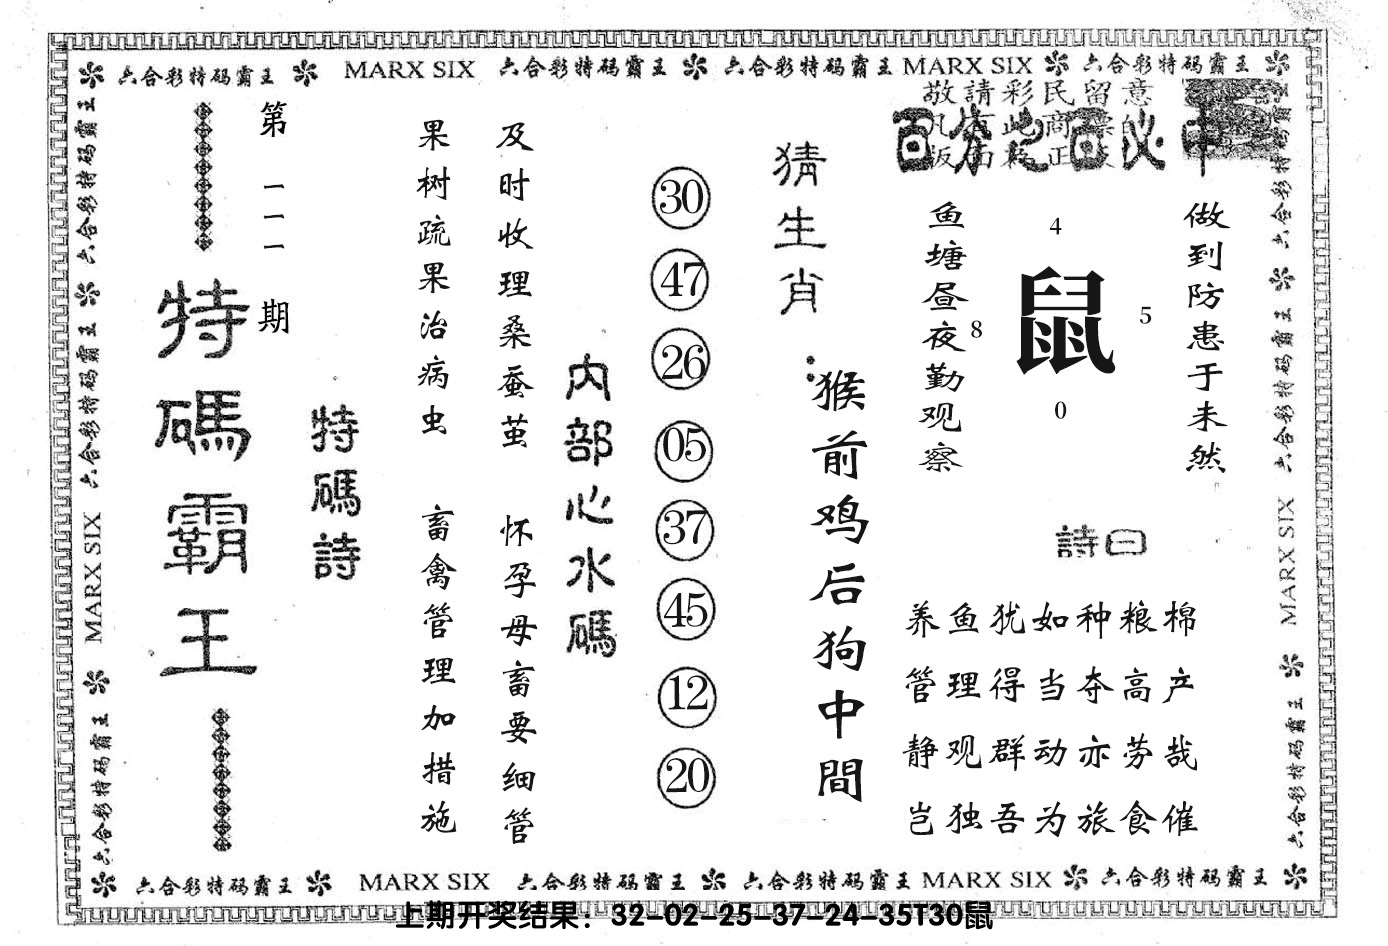 六合彩特码霸王 MARX SIX 六合彩特码霸王 六合彩特码霸王 MARX SIX 六合彩特码霸王
敬請彩民留意
百分之百必中
做到防患于未然
鱼塘昼夜勤观察
4
8
鼠
5
0
詩曰
养鱼犹如种粮棉
管理得当夺高产
静观群动亦劳哉
岂独吾为旅食催
猜生肖：
猴前鸡后狗中間
30
47
26
05
37
45
12
20
内部心水碼
及时收理桑蚕茧 怀孕母畜要细管
果树疏果治病虫 畜禽管理加措施
特碼詩
第一一一期
特碼霸王
六合彩特码霸王 六合彩特码霸王 MARX SIX 六合彩特码霸王
六合彩特码霸王 六合彩特码霸王 MARX SIX 六合彩特码霸王
六合彩特码霸王 MARX SIX 六合彩特码霸王 六合彩特码霸王 MARX SIX 六合彩特码霸王
上期开奖结果：32-02-25-37-24-35T30鼠